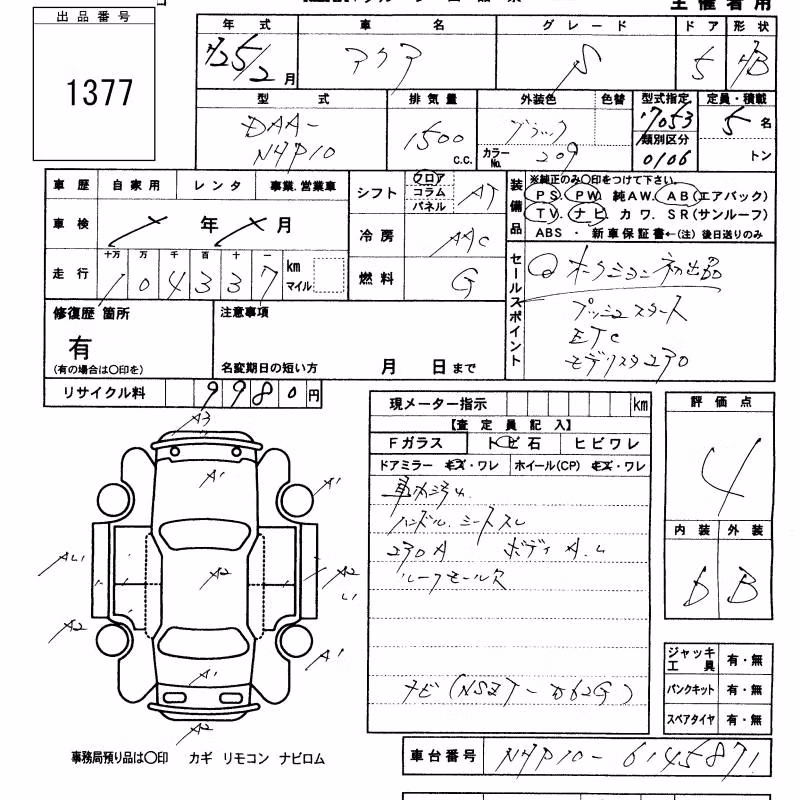 出品番号
1377
主催者用
年式 車名 グレード ドア 形状
25/2月 アクア S 5 HB
型式 排気量 外装色 色替 型式指定 定員・積載
DAA-NHP10 1500 c.c. ブラック 17053 5名
カラーNo. 209 類別区分 0106 トン
車歴 自家用 レンタ 事業.営業車
シフト フロア コラム パネル AT
装備品 ※純正のみ〇印をつけて下さい。
PS. PW. 純AW. AB(エアバック)
TV. ナビ カワ. SR(サンルーフ)
ABS ・ 新車保証書←(注) 後日送りのみ
車検 年 月
冷房 AAC
走行 十万 万 千 百 十 一
104337 km マイル
燃料 G
セールスポイント
オークション初出品
プッシュスタート
ETC
モデリスタエアロ
修復歴 箇所
有
(有の場合は〇印を)
注意事項
名変期日の短い方 月 日まで
リサイクル料 9980円
現メーター指示 km
【査定員記入】
Fガラス トビ石 ヒビワレ
ドアミラー キズ・ワレ ホイール(CP) キズ・ワレ
ハンドル.シートスレ
エアロA ボディA.L
ルーフモール欠
ナビ(NSZT-
評価点
4
内装 外装
D B
A3
A1
A1
AL1
A2
A2
L1
A2
A1
A1
A2
ジャッキ工具 有・無
パンクキット 有・無
スペアタイヤ 有・無
事務局預り品は〇印 カギ リモコン ナビロム
車台番号 NHP10-6145871